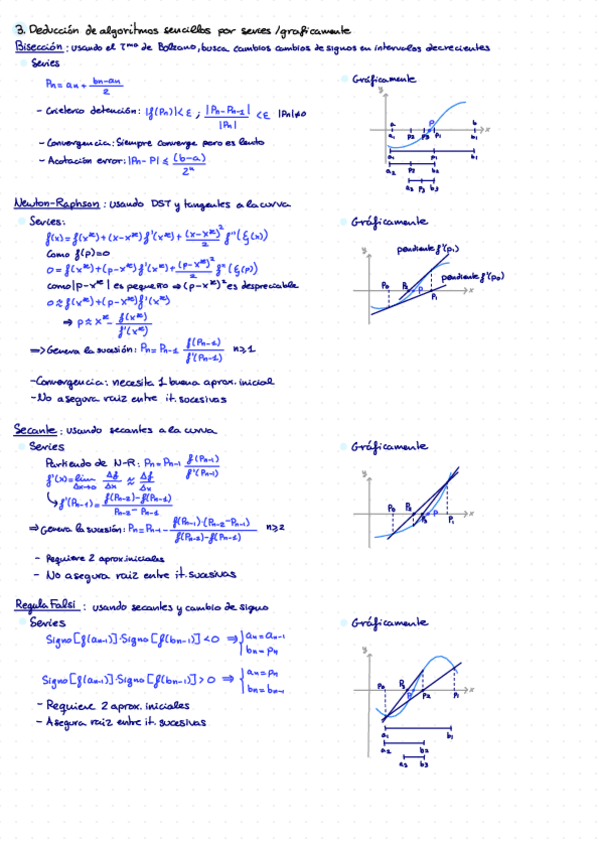 3. Deducción de algoritmos sencillos por series/graficamente
Bisección: usando el Tmo de Bolzano, busca cambios cambios de signos en intervalos decrecientes
Series
Pn = an + (bn-an)/2
- Criterio detención: |f(Pn)| < ε ; |Pn - Pn-1|/|Pn| < ε |Pn|≠0
- Convergencia: Siempre converge pero es lento
- Acotación error: |Pn - P| ≤ (b-a)/2^n
Gráficamente
y
a P b
P2 P3 P1 x
a1 b1
a2 P2 b2
a3 P3 b3
Newton-Raphson: usando DST y tangentes a la curva
Series:
f(x) = f(x*) + (x-x*) f'(x*) + (x-x*)²/2 f''(ξ(x))
Como f(p)=0
0 = f(x*) + (p-x*) f'(x*) + (p-x*)²/2 f''(ξ(p))
como |p-x*| es pequeño ⇒ (p-x*)² es despreciable
0 ≈ f(x*) + (p-x*) f'(x*)
⇒ p ≈ x* - f(x*)/f'(x*)
⇒ Genera la sucesión: Pn = Pn-1 f(Pn-1)/f'(Pn-1) n≥1
- Convergencia: necesita 1 buena aprox. inicial
- No asegura raiz entre it. sucesivas
Gráficamente
pendiente f'(p1)
pendiente f'(p0)
y
P0 P2 P P1 x
Secante: usando secantes a la curva
Series
Partiendo de N-R: Pn = Pn-1 f(Pn-1)/f'(Pn-1)
f'(x) = lim Δx→0 Δf/Δx ≈ Δf/Δx
f'(Pn-1) = (f(Pn-2) - f(Pn-1))/(Pn-2 - Pn-1)
⇒ Genera la sucesión: Pn = Pn-1 - f(Pn-1)·(Pn-2 - Pn-1)/(f(Pn-2) - f(Pn-1)) n≥2
- Requiere 2 aprox. iniciales
- No asegura raiz entre it. sucesivas
Gráficamente
y
P0 P2 P3 P P1 x
Regula Falsi: usando secantes y cambio de signo
Series
Signo[f(an-1)]·Signo[f(bn-1)] < 0 ⇒ { an = an-1
bn = pn
Signo[f(an-1)]·Signo[f(bn-1)] > 0 ⇒ { an = pn
bn = bn-1
- Requiere 2 aprox. iniciales
- Asegura raiz entre it. sucesivas
Gráficamente
y
P0 P3 P P2 P1 x
a1 b1
a2 b2
a3 b3